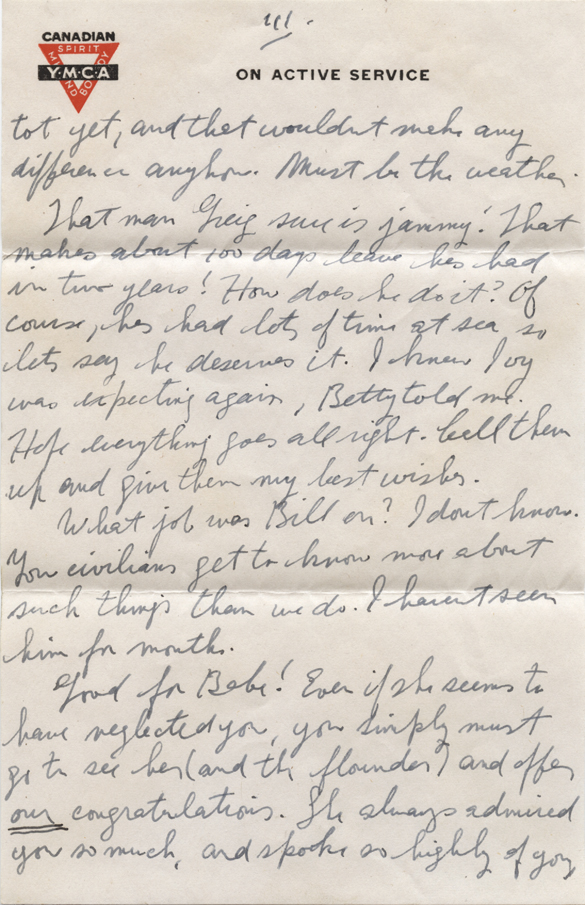 111.
CANADIAN
SPIRIT
MIND Y·M·C·A BODY
ON ACTIVE SERVICE
tot yet, and that wouldnt make any
difference anyhow. Must be the weather.
That man Greig sure is jammy! That
makes about 100 days leave hes had
in two years! How does he do it? Of
course, hes had lots of time at sea so
lets say he deserves it. I knew Joy
was expecting again, Betty told me.
Hope everything goes all right. Call them
up and give them my best wishes.
What job was Bill on? I dont know.
You civilians get to know more about
such things than we do. I havent seen
him for months.
Good for Bebe! Even if she seems to
have neglected you, you simply must
go to see her (and the flounder) and offer
our congratulations. She always admired
you so much, and spoke so highly of you